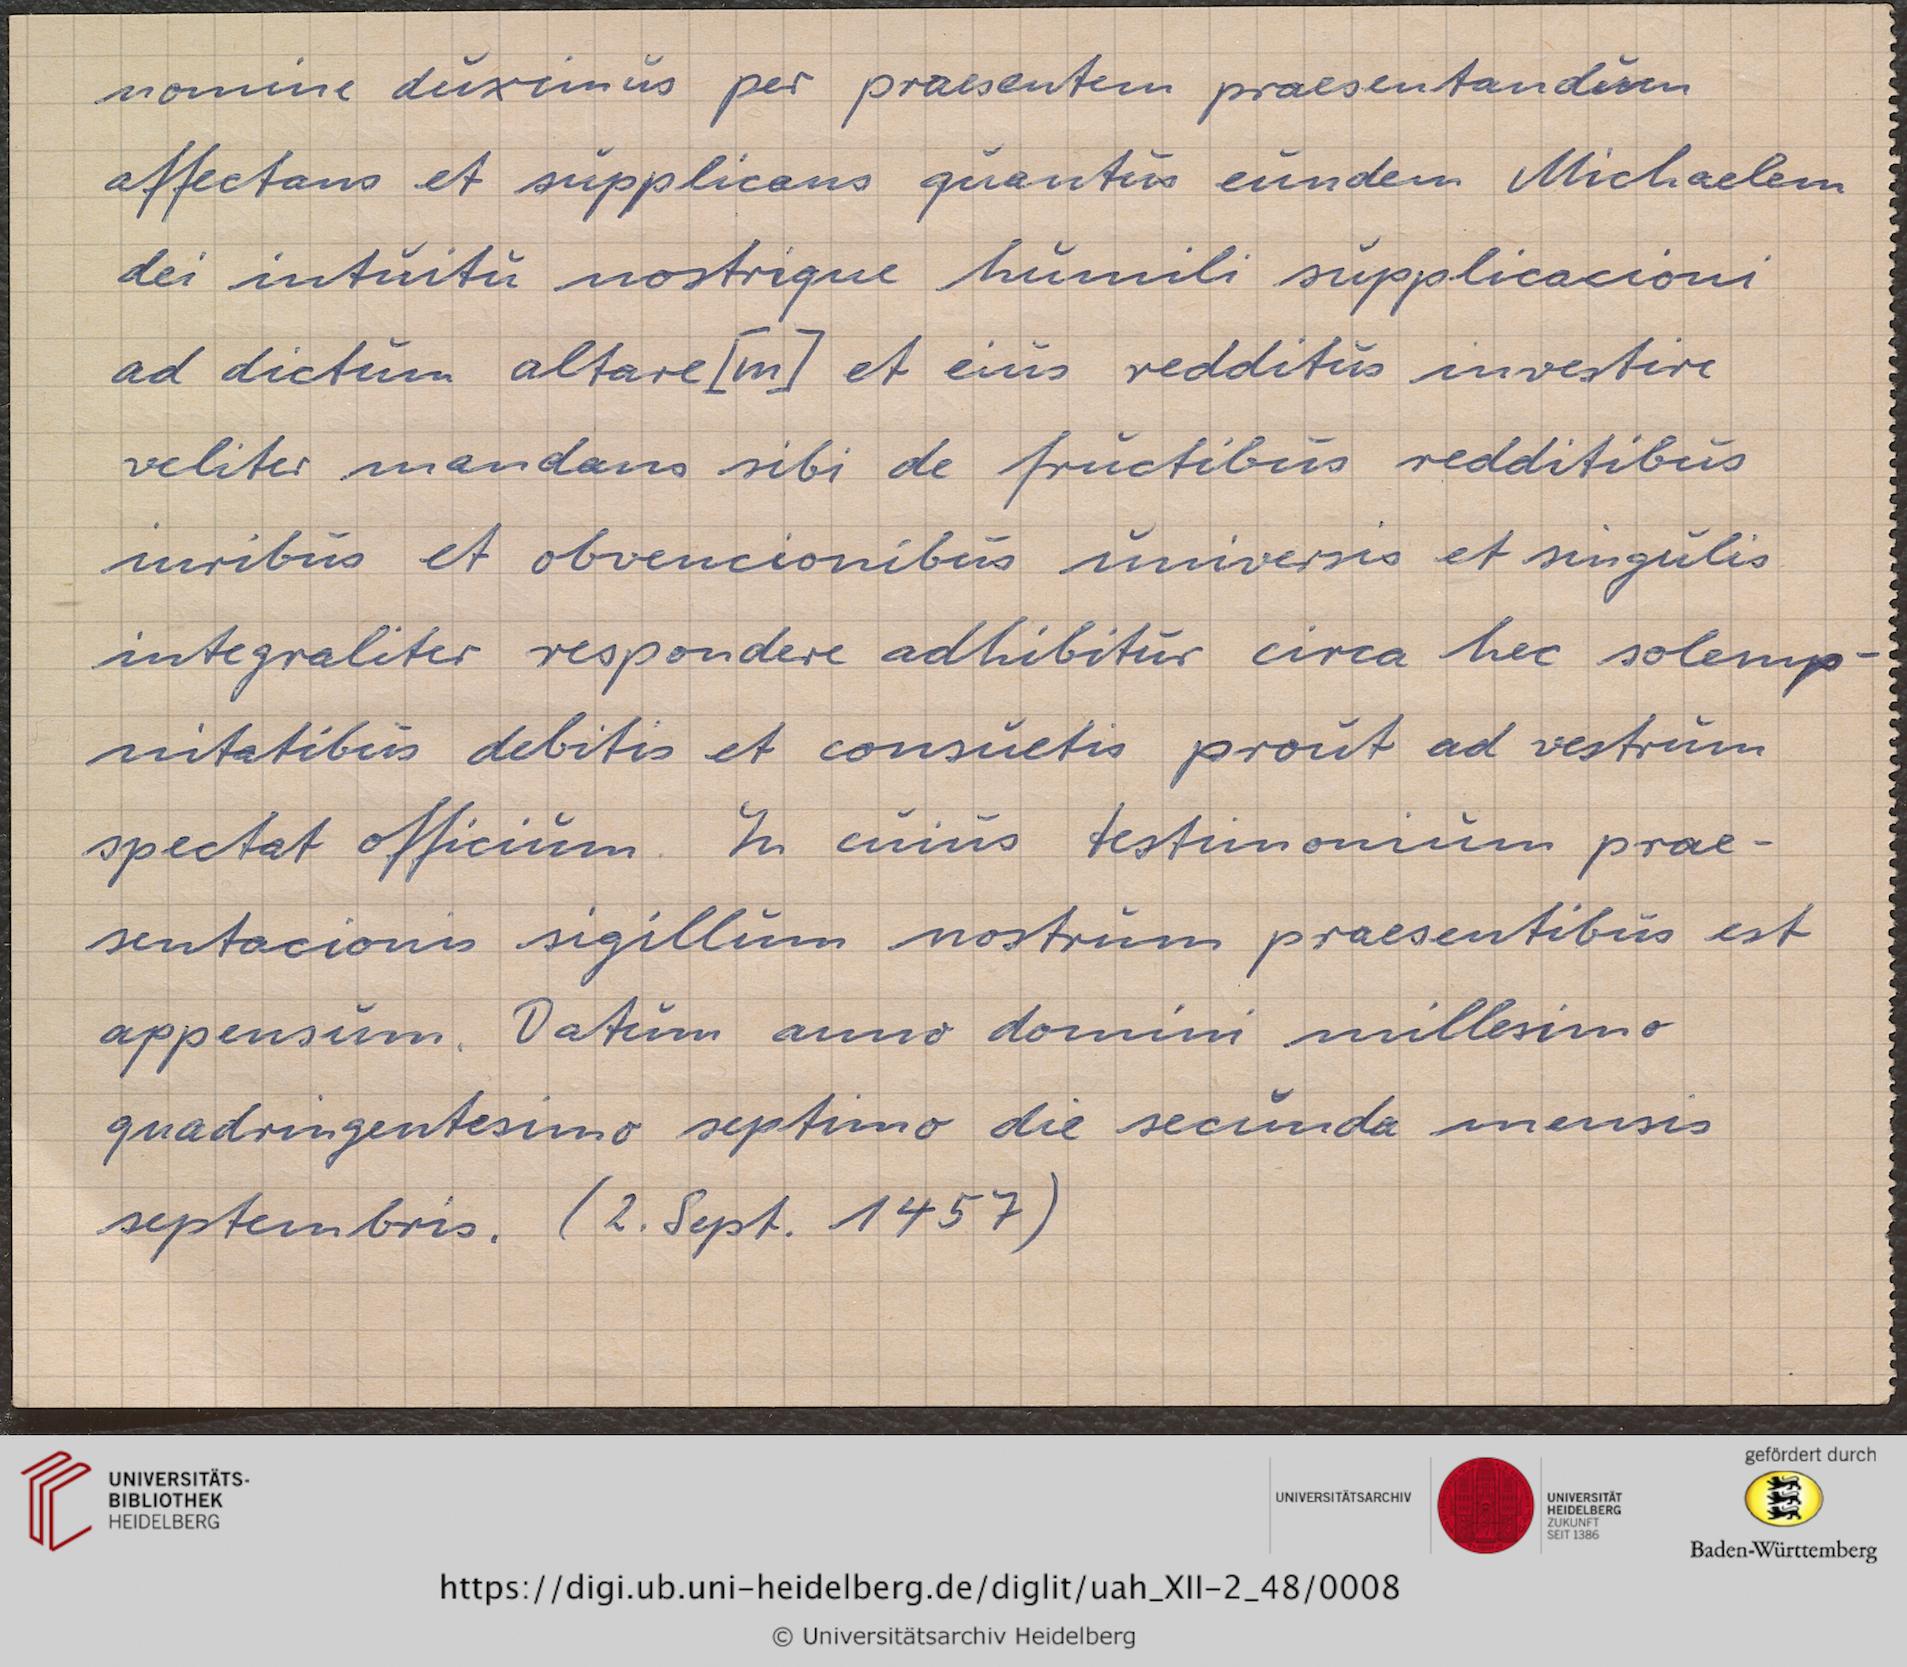 nomine duximus per praesentem praesentandum
affectans et supplicans quantus eundem Michaelem
dei intuitu nostrique humili supplicacioni
ad dictum altare[m] et eius redditus investire
veliter mandans sibi de fructibus redditibus
iuribus et obvencionibus universis et singulis
integraliter respondere adhibitur circa hec solemp-
nitatibus debitis et consuetis prout ad vestrum
spectat officium. In cuius testimonium prae-
sentacionis sigillum nostrum praesentibus est
appensum. Datum anno domini millesimo
quadringentesimo septimo die secunda mensis
septembris. (2. Sept. 1457)
UNIVERSITÄTS-
BIBLIOTHEK
HEIDELBERG
UNIVERSITÄTSARCHIV
UNIVERSITÄT
HEIDELBERG
ZUKUNFT
SEIT 1386
gefördert durch
Baden-Württemberg
https://digi.ub.uni-heidelberg.de/diglit/uah_XII-2_48/0008
© Universitätsarchiv Heidelberg